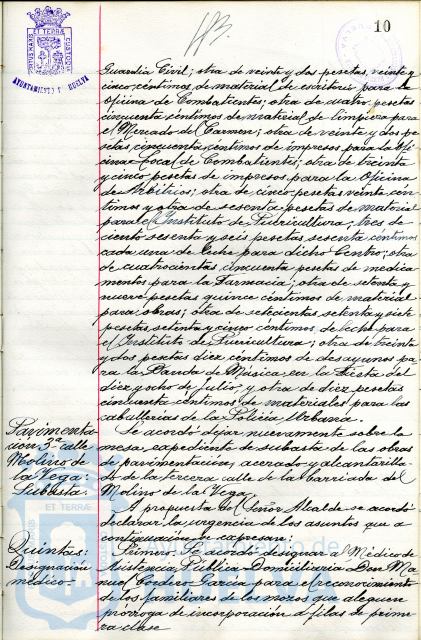 10
PORTUS MARIS ET TERRÆ CUSTODIA
AYUNTAMIENTO DE HUELVA
Guardia Civil; otra de veinte y dos pesetas, veinte y
cinco céntimos de material de escritorio para la
oficina de Combatientes; otra de cuatro pesetas
cincuenta céntimos de material de limpieza para
el Mercado del Carmen; otra de veinte y dos pe-
setas, cincuenta céntimos de impresos para la Ofi-
cina Local de Combatientes; otra de treinta
y cinco pesetas de impresos para la Oficina
de Arbitrios; otra de cinco pesetas veinte cén-
timos y otra de sesenta pesetas de material
para el Instituto de Puericultura; tres de
ciento sesenta y seis pesetas, sesenta céntimos
cada una de leche para dicho Centro; otra
de cuatrocientas cincuenta pesetas de medica-
mentos para la Farmacia; otra de setenta y
nueve pesetas quince céntimos de material
para obras; otra de setecientas setenta y siete
pesetas, setenta y cinco céntimos, de leche para
el Instituto de Puericultura; otra de treinta
y dos pesetas diez céntimos de desayunos pa-
ra la Banda de Música en la Fiesta del
diez y ocho de Julio; y otra de diez pesetas
cincuenta céntimos de materiales para las
caballerías de la Policía Urbana.
Pavimenta-
ción 3ª calle
Molino de
la Vega:
Subasta.
Se acordó dejar nuevamente sobre la
mesa, expediente de subasta de las obras
de pavimentación, acerado y alcantarilla-
do de la tercera calle de la barriada del
Molino de la Vega.
A propuesta del Señor Alcalde se acordó
declarar la urgencia de los asuntos que a
continuación se expresan:
Quintas:
Designación
médico.
Primero. Se acordó designar al Médico de
Asistencia Pública Domiciliaria Don Ma-
nuel Cordero García para el reconocimiento
de los familiares de los mozos que aleguen
prórroga de incorporación a filas de prime-
ra clase